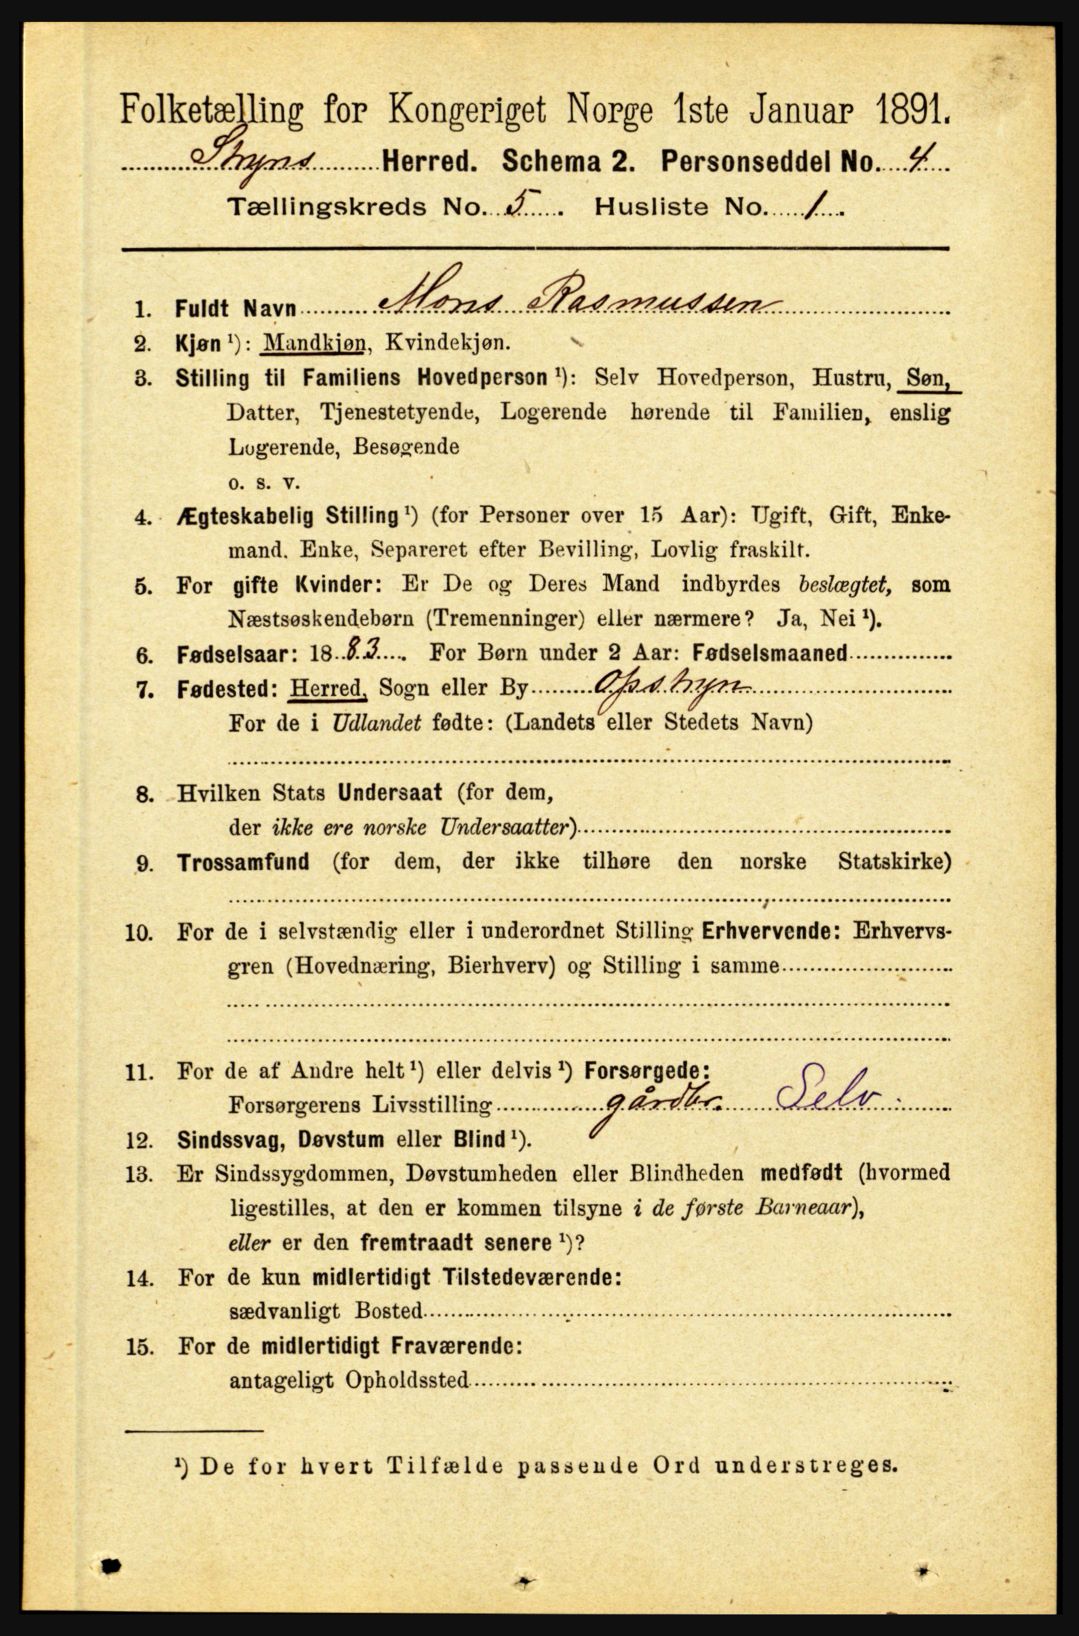 Folketælling for Kongeriget Norge 1ste Januar 1891.
Stryns Herred. Schema 2. Personseddel No. 4
Tællingskreds No. 5. Husliste No. 1.
1. Fuldt Navn Mons Rasmussen
2. Kjøn ¹): Mandkjøn, Kvindekjøn.
3. Stilling til Familiens Hovedperson ¹): Selv Hovedperson, Hustru, Søn,
Datter, Tjenestetyende, Logerende hørende til Familien, enslig
Logerende, Besøgende
o. s. v.
4. Ægteskabelig Stilling ¹) (for Personer over 15 Aar): Ugift, Gift, Enke-
mand. Enke, Separeret efter Bevilling, Lovlig fraskilt.
5. For gifte Kvinder: Er De og Deres Mand indbyrdes beslægtet, som
Næstsøskendebørn (Tremenninger) eller nærmere? Ja, Nei ¹).
6. Fødselsaar: 1883. For Børn under 2 Aar: Fødselsmaaned
7. Fødested: Herred, Sogn eller By Opstryn
For de i Udlandet fødte: (Landets eller Stedets Navn)
8. Hvilken Stats Undersaat (for dem,
der ikke ere norske Undersaatter)
9. Trossamfund (for dem, der ikke tilhøre den norske Statskirke)
10. For de i selvstændig eller i underordnet Stilling Erhvervende: Erhvervs-
gren (Hovednæring, Bierhverv) og Stilling i samme
11. For de af Andre helt ¹) eller delvis ¹) Forsørgede:
Forsørgerens Livsstilling gårdbr. Selv.
12. Sindssvag, Døvstum eller Blind ¹).
13. Er Sindssygdommen, Døvstumheden eller Blindheden medfødt (hvormed
ligestilles, at den er kommen tilsyne i de første Barneaar),
eller er den fremtraadt senere ¹)?
14. For de kun midlertidigt Tilstedeværende:
sædvanligt Bosted
15. For de midlertidigt Fraværende:
antageligt Opholdssted
¹) De for hvert Tilfælde passende Ord understreges.